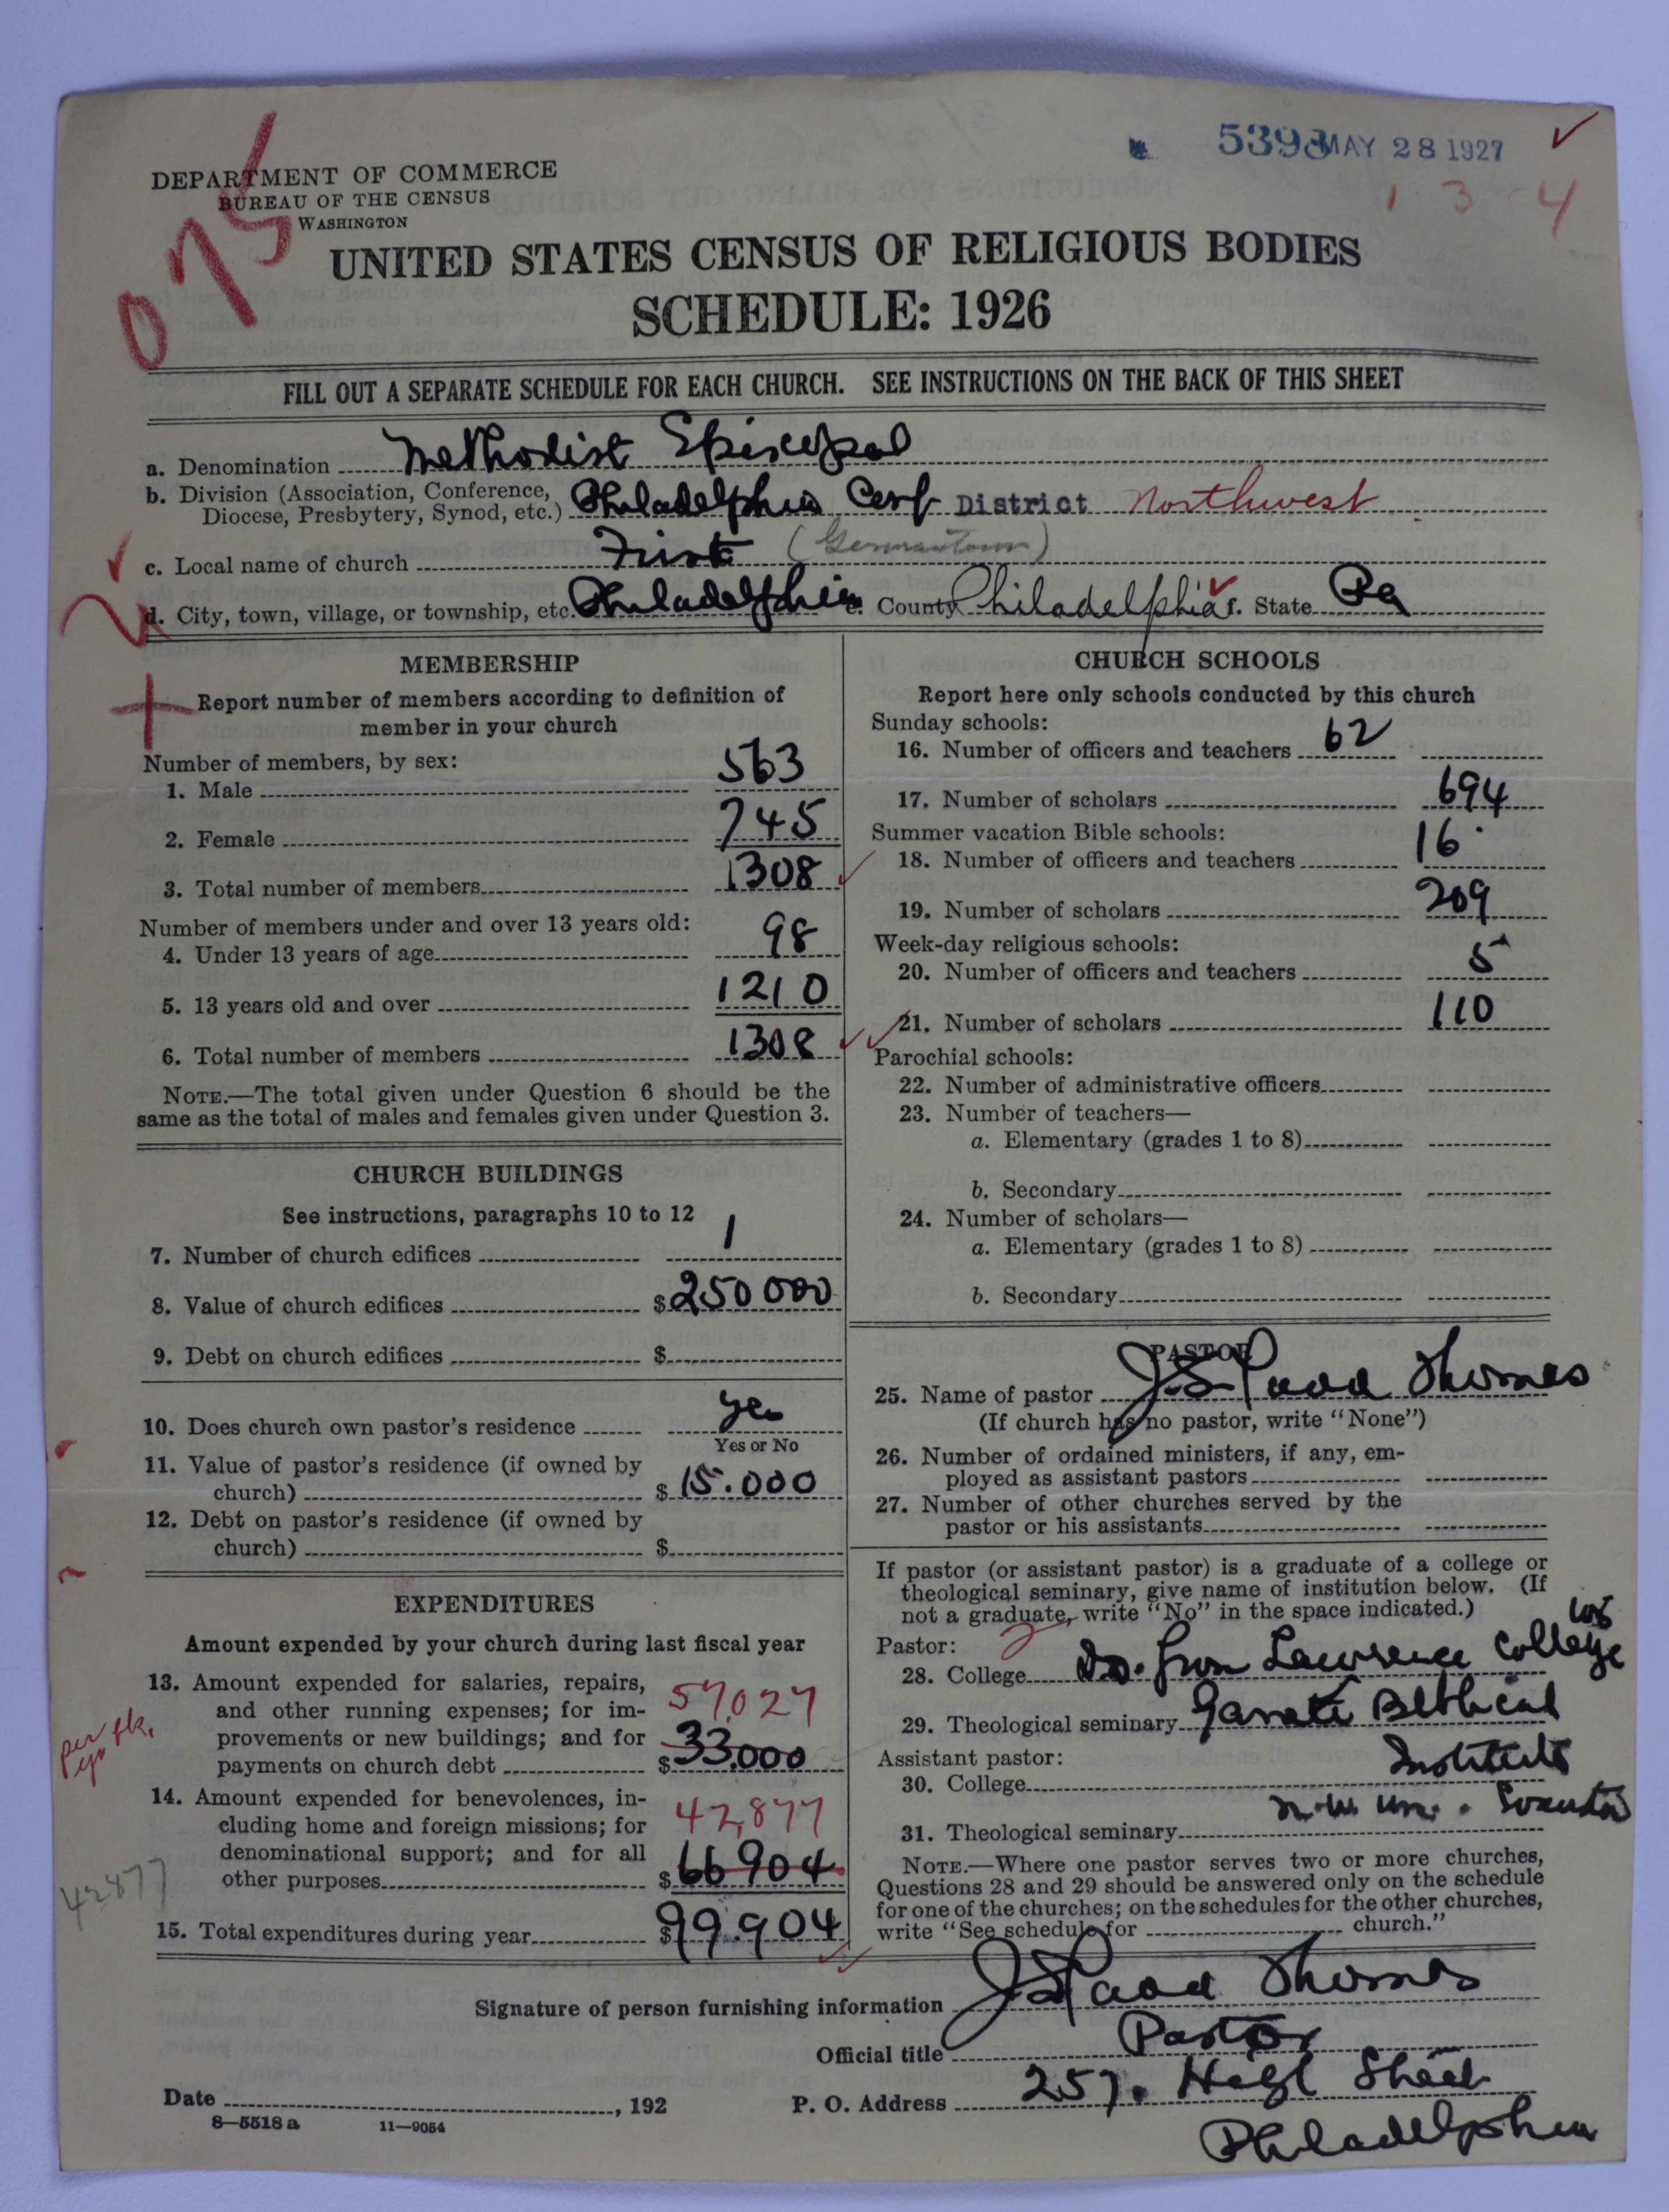 5393 MAY 28 1927
1 3 4
075
DEPARTMENT OF COMMERCE
BUREAU OF THE CENSUS
WASHINGTON
UNITED STATES CENSUS OF RELIGIOUS BODIES
SCHEDULE: 1926
FILL OUT A SEPARATE SCHEDULE FOR EACH CHURCH. SEE INSTRUCTIONS ON THE BACK OF THIS SHEET
a. Denomination Methodist Episcopal
b. Division (Association, Conference, Diocese, Presbytery, Synod, etc.) Philadelphia Conf District Northwest
c. Local name of church First (Germantown)
d. City, town, village, or township, etc. Philadelphia e. County Philadelphia f. State Pa
MEMBERSHIP
Report number of members according to definition of
member in your church
Number of members, by sex:
1. Male 563
2. Female 745
3. Total number of members 1308
Number of members under and over 13 years old:
4. Under 13 years of age 98
5. 13 years old and over 1210
6. Total number of members 1308
NOTE.—The total given under Question 6 should be the
same as the total of males and females given under Question 3.
CHURCH BUILDINGS
See instructions, paragraphs 10 to 12
7. Number of church edifices 1
8. Value of church edifices $250000
9. Debt on church edifices $
10. Does church own pastor's residence yes
Yes or No
11. Value of pastor's residence (if owned by
church) $15.000
12. Debt on pastor's residence (if owned by
church) $
EXPENDITURES
Amount expended by your church during last fiscal year
13. Amount expended for salaries, repairs,
and other running expenses; for im- 57,027
provements or new buildings; and for
payments on church debt $33.000
per yr bk.
14. Amount expended for benevolences, in-
cluding home and foreign missions; for 42,877
denominational support; and for all
other purposes $66904
42877
15. Total expenditures during year $99.904
CHURCH SCHOOLS
Report here only schools conducted by this church
Sunday schools:
16. Number of officers and teachers 62
17. Number of scholars 694
Summer vacation Bible schools:
18. Number of officers and teachers 16
19. Number of scholars 209
Week-day religious schools:
20. Number of officers and teachers 5
21. Number of scholars 110
Parochial schools:
22. Number of administrative officers
23. Number of teachers—
a. Elementary (grades 1 to 8)
b. Secondary
24. Number of scholars—
a. Elementary (grades 1 to 8)
b. Secondary
PASTOR
25. Name of pastor J. S. Ladd Thomas
(If church has no pastor, write "None")
26. Number of ordained ministers, if any, em-
ployed as assistant pastors
27. Number of other churches served by the
pastor or his assistants
If pastor (or assistant pastor) is a graduate of a college or
theological seminary, give name of institution below. (If
not a graduate, write "No" in the space indicated.)
Pastor:
28. College Lawrence College
29. Theological seminary Garrett Biblical
Institute
Assistant pastor:
30. College
N.W. Un. Evanston
31. Theological seminary
NOTE.—Where one pastor serves two or more churches,
Questions 28 and 29 should be answered only on the schedule
for one of the churches; on the schedules for the other churches,
write "See schedule for church."
Signature of person furnishing information J. S. Ladd Thomas
Official title Pastor
Date , 192 P. O. Address 257. High Street
Philadelphia
8—5518 a 11—9054